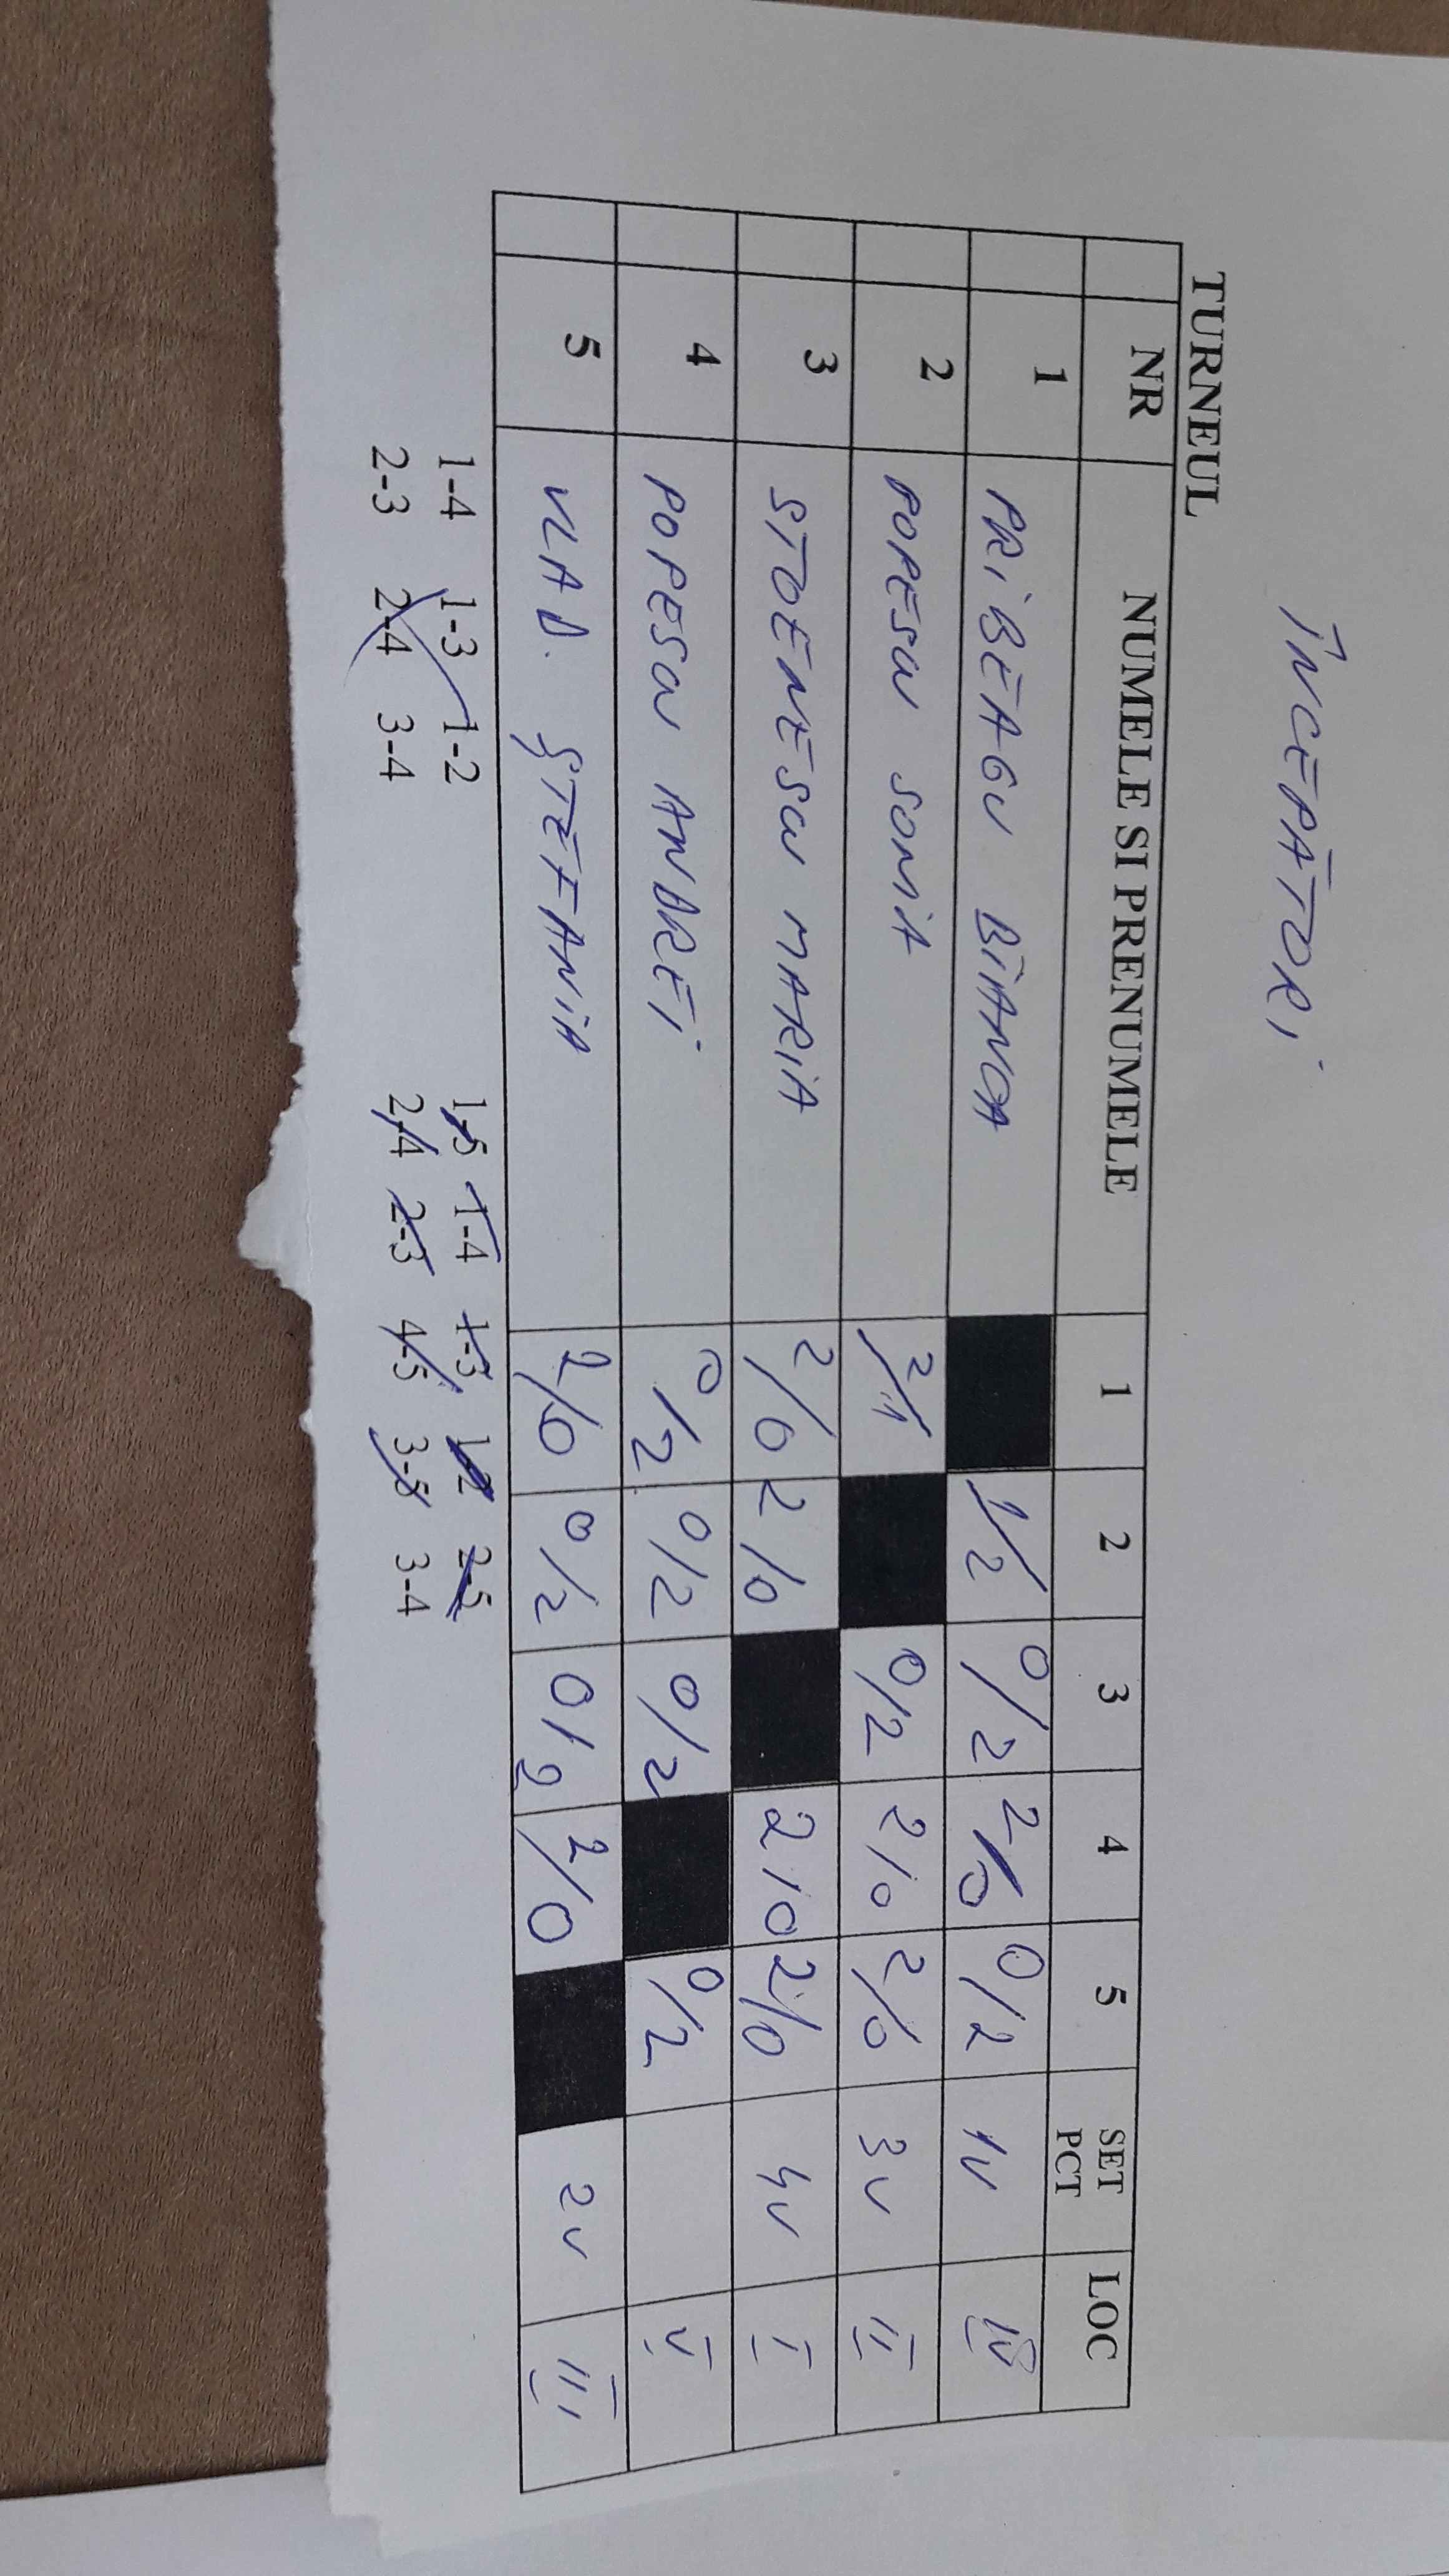 ÎNCEPĂTORI
TURNEUL
NR NUMELE SI PRENUMELE 1 2 3 4 5 SET PCT LOC
1 PRIBEAGU BIANCA 1/2 0/2 2/0 0/2 1V IV
2 POPESCU SONIA 2/1 0/2 2/0 2/0 3V II
3 STOENESCU MARIA 2/0 2/0 2/0 2/0 4V I
4 POPESCU ANDREI 0/2 0/2 0/2 0/2 V
5 VLAD ȘTEFANIA 2/0 0/2 0/2 2/0 2V III
1-4 1-3 1-2 1-5 1-4 1-3 1-2 2-5
2-3 2-4 3-4 2-4 2-3 4-5 3-5 3-4